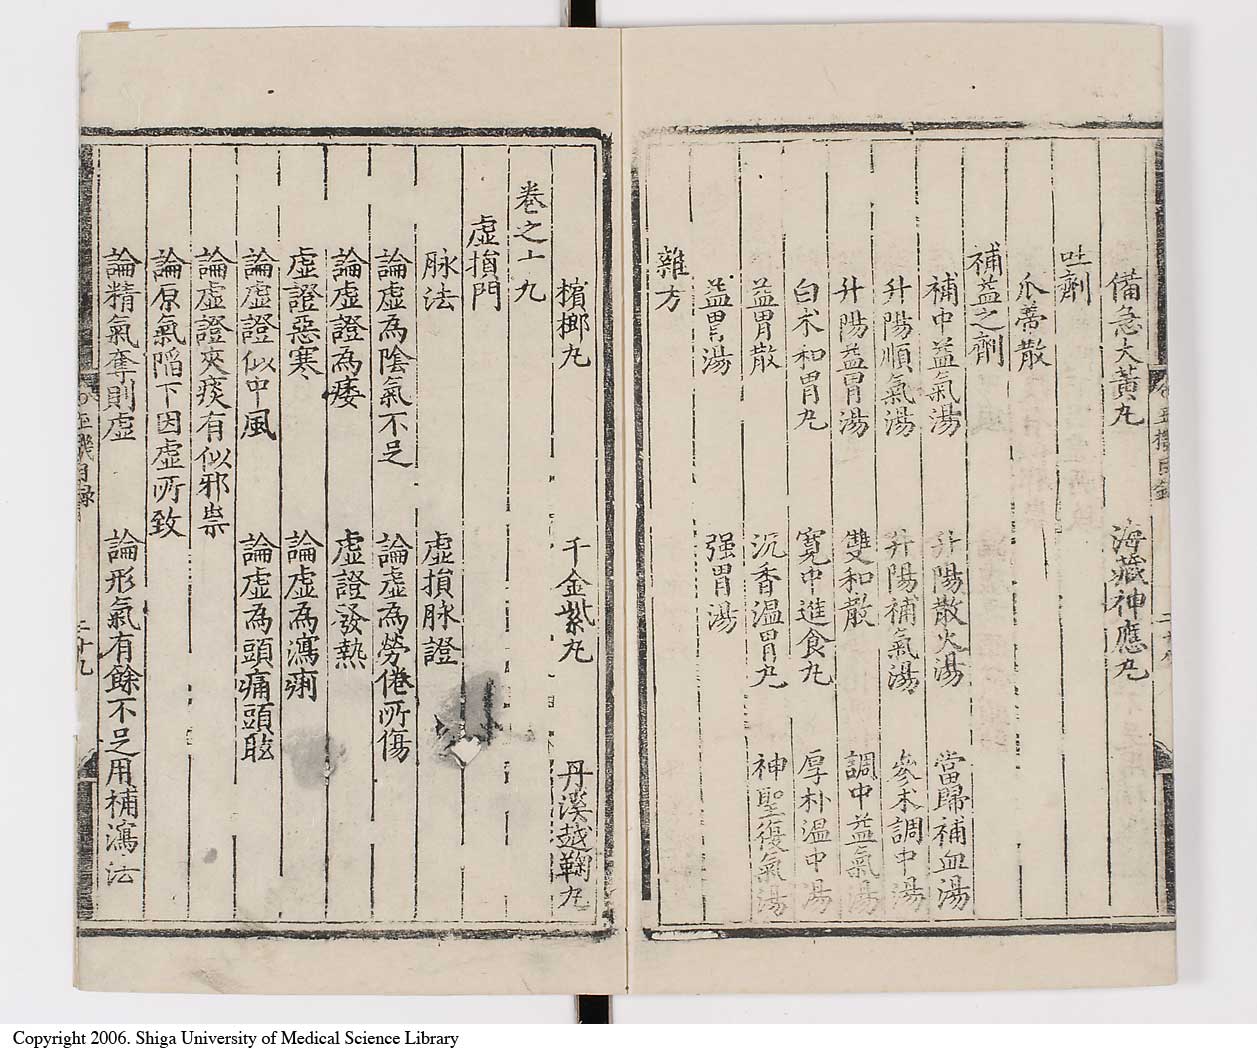 備急大黃丸　海藏神應丸
吐劑
瓜蒂散
補益之劑
補中益氣湯　升陽散火湯　當歸補血湯
升陽順氣湯　升陽補氣湯　參朮調中湯
升陽益胃湯　雙和散　調中益氣湯
白朮和胃丸　寬中進食丸　厚朴溫中湯
益胃散　沉香溫胃丸　神聖復氣湯
益胃湯　强胃湯
雜方
檳榔丸　千金紫丸　丹溪越鞠丸
卷之十九
虛損門
脉法　虛損脉證
論虛為陰氣不足　論虛為勞倦所傷
論虛證為痿　虛證發熱
虛證惡寒　論虛為瀉痢
論虛證似中風　論虛為頭痛頭眩
論虛證夾痰有似邪祟
論原氣陷下因虛所致
論精氣奪則虛　論形氣有餘不足用補瀉法
玉機目錄　二十九
Copyright 2006. Shiga University of Medical Science Library